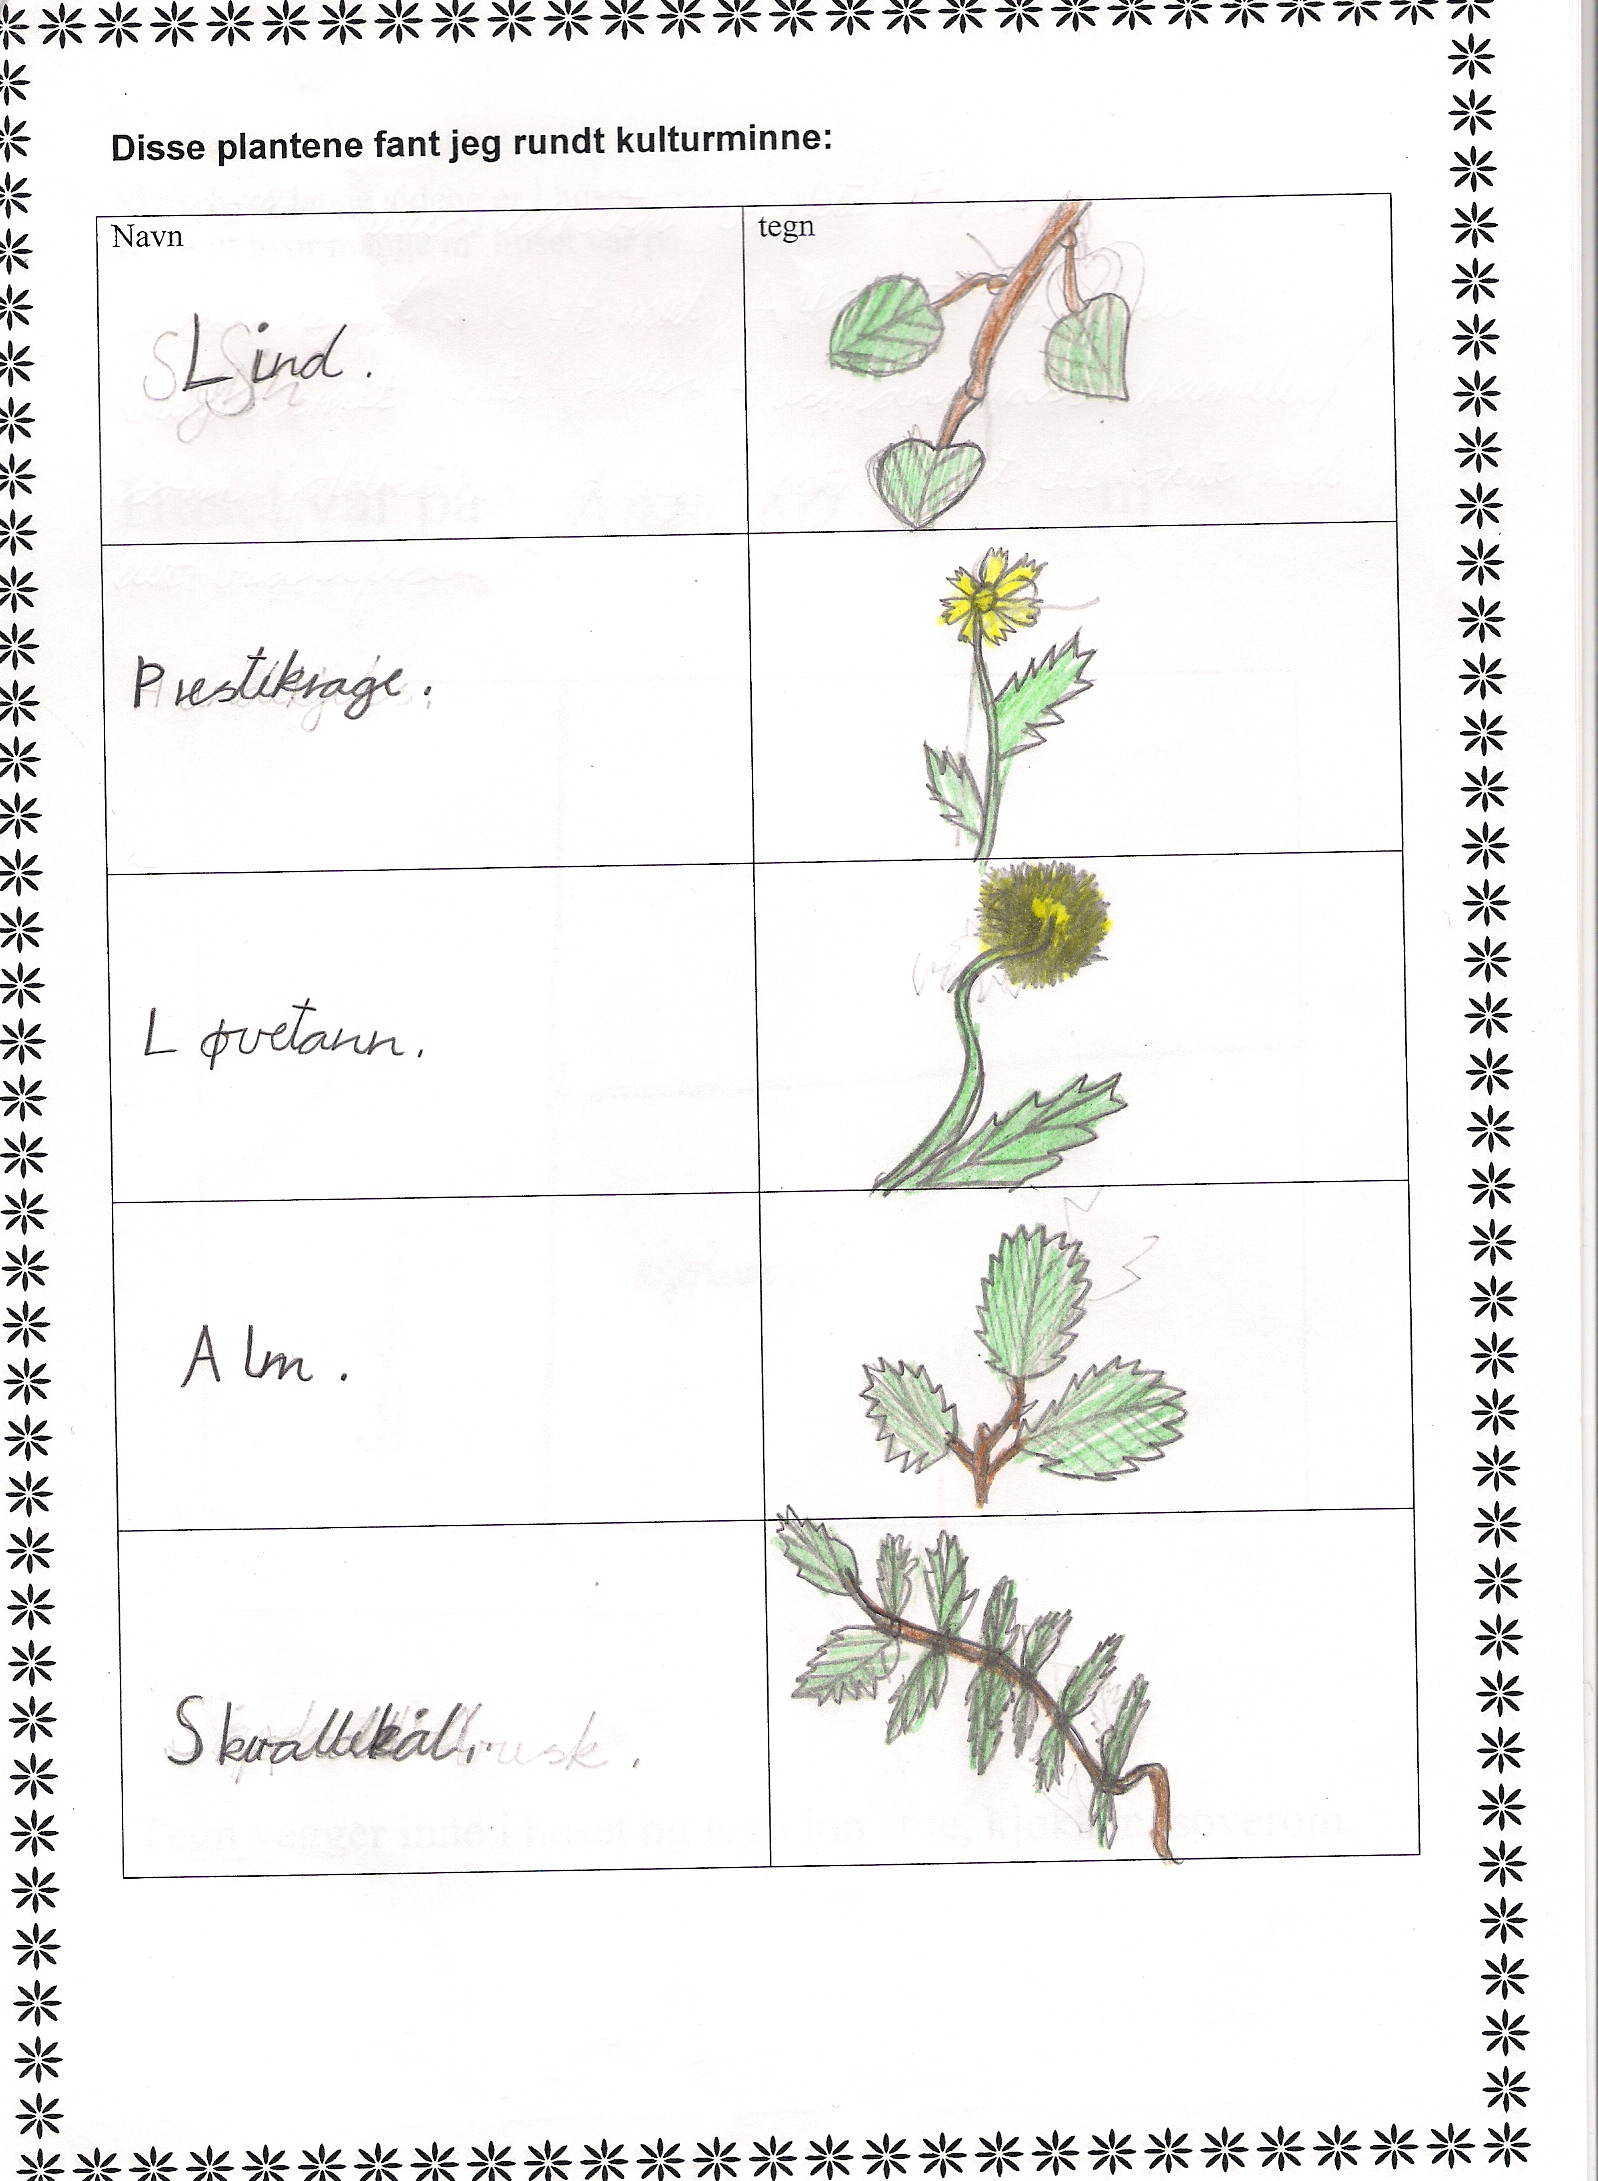 Disse plantene fant jeg rundt kulturminne:
Navn
tegn
Lind.
Prestikrage.
Løvetann.
Alm.
Skvallekål.